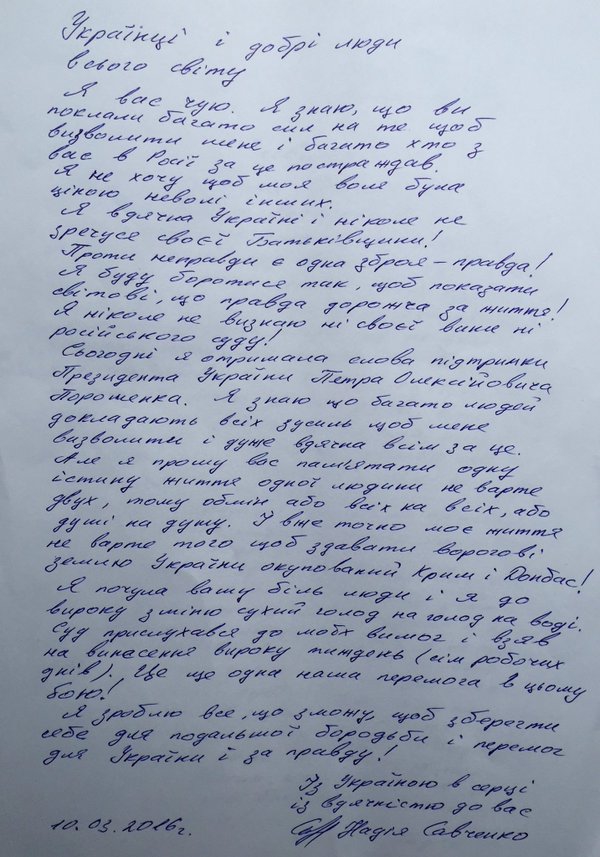 Українці і добрі люди
всього світу
Я вас чую. Я знаю, що ви
поклали багато сил на те щоб
визволити мене і багато хто з
вас в Росії за це постраждав.
Я не хочу щоб моя воля була
ціною неволі інших.
Я вдячна Україні і ніколе не
зречусе своєї Батьківщини!
Проти неправди є одна зброя – правда!
Я буду боротисе так, щоб показати
світові, що правда дорожча за життя!
Я ніколе не визнаю ні своєї вине ні
російського суду!
Сьогодні я отримала слова підтримки
Президента України Петра Олексійовича
Порошенка. Я знаю що багато людей
докладають всіх зусиль щоб мене
визволити і дуже вдячна всім за це.
Але я прошу вас пам'ятати одну
істину життя одної людини не варте
двух, тому обмін або всіх на всіх, або
душі на душу. І вже точно моє життя
не варте того щоб здавати ворогові
землю України окупований Крим і Донбас!
Я почула вашу біль люди і я до
вироку змінію сухий голод на голод на воді.
Суд прислухався до моїх вимог і взяв
на винесення вироку тиждень (сім робочих
днів). Це ще одна наша перемога в цьому
бою!
Я зроблю все, що зможу, щоб зберегти
себе для подальшої бородьби і перемог
для України і за правду!
Із Україною в серці
із вдячністю до вас
10.03.2016г. Надія Савченко